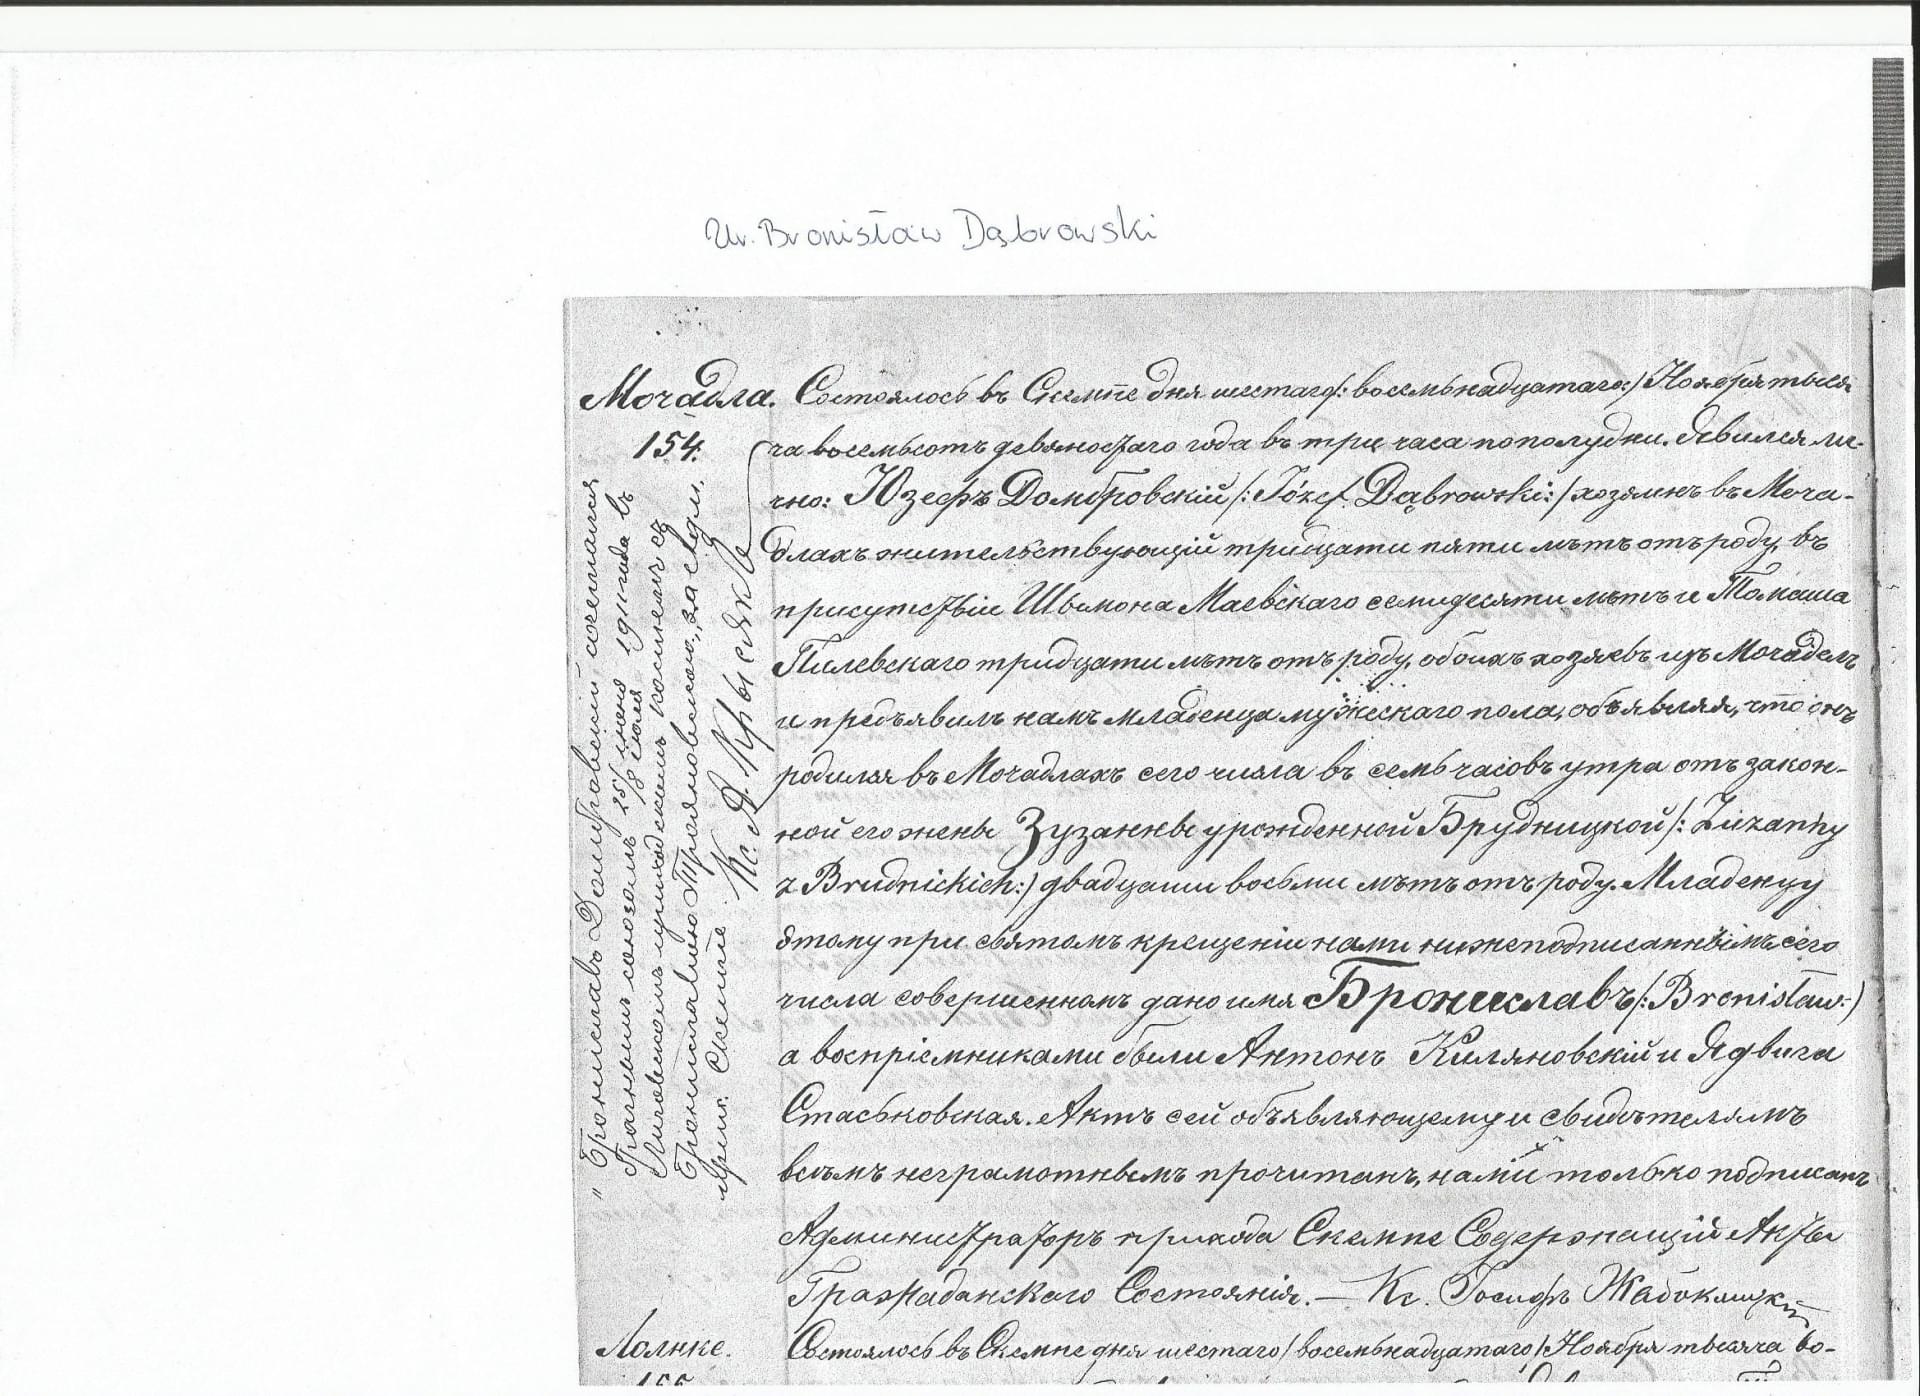 Ur. Bronisław Dąbrowski
Мочадла.
154.
Состоялось въ Скемпе дня шестаго /: восемьнадцатаго:/ Ноября тыся-
ча восемьсотъ девяностаго года въ три часа пополудни. Явился ли-
чно: Юзефъ Домбровскій /: Józef Dąbrowski:/ хозяинъ въ Моча-
длахъ жительствующій тридцати пяти лѣтъ отъ роду, въ
присутствіи Шымона Маевскаго семидесяти лѣтъ и Томаша
Пилевскаго тридцати лѣтъ отъ роду, обоихъ хозяевъ изъ Мочаделъ
и предъявилъ намъ младенца мужескаго пола, объявляя, что онъ
родился въ Мочадлахъ сего числа въ семь часовъ утра отъ закон-
ной его жены Зузанны урожденной Брудницкой /: Zuzanny
z Brudnickich:/ двадцати восьми лѣтъ отъ роду. Младенцу
этому при святомъ крещеніи нами нижеподписаннымъ сего
числа совершенномъ дано имя Брониславъ /: Bronisław:/
а воспріемниками были Антонъ Киляновскій и Ядвига
Стаськовская. Актъ сей объявляющему и свидѣтелямъ
всѣмъ неграмотнымъ прочитанъ, нами только подписанъ
Администраторъ прихода Скемпе Содержащій Акты
Гражданскаго Состоянія. — Кс. Іосифъ
" Брониславъ Домбровскій сочетался
брачнымъ союзомъ 25/8 іюня/іюля 1911 года въ
приходскомъ костелѣ съ
Брониславою Трояновскою", за свѣд.
прих. Скемпе Кс. А.
Лонке.
155
Состоялось въ Скемпе дня шестаго /восемьнадцатаго/ Ноября тысяча во-